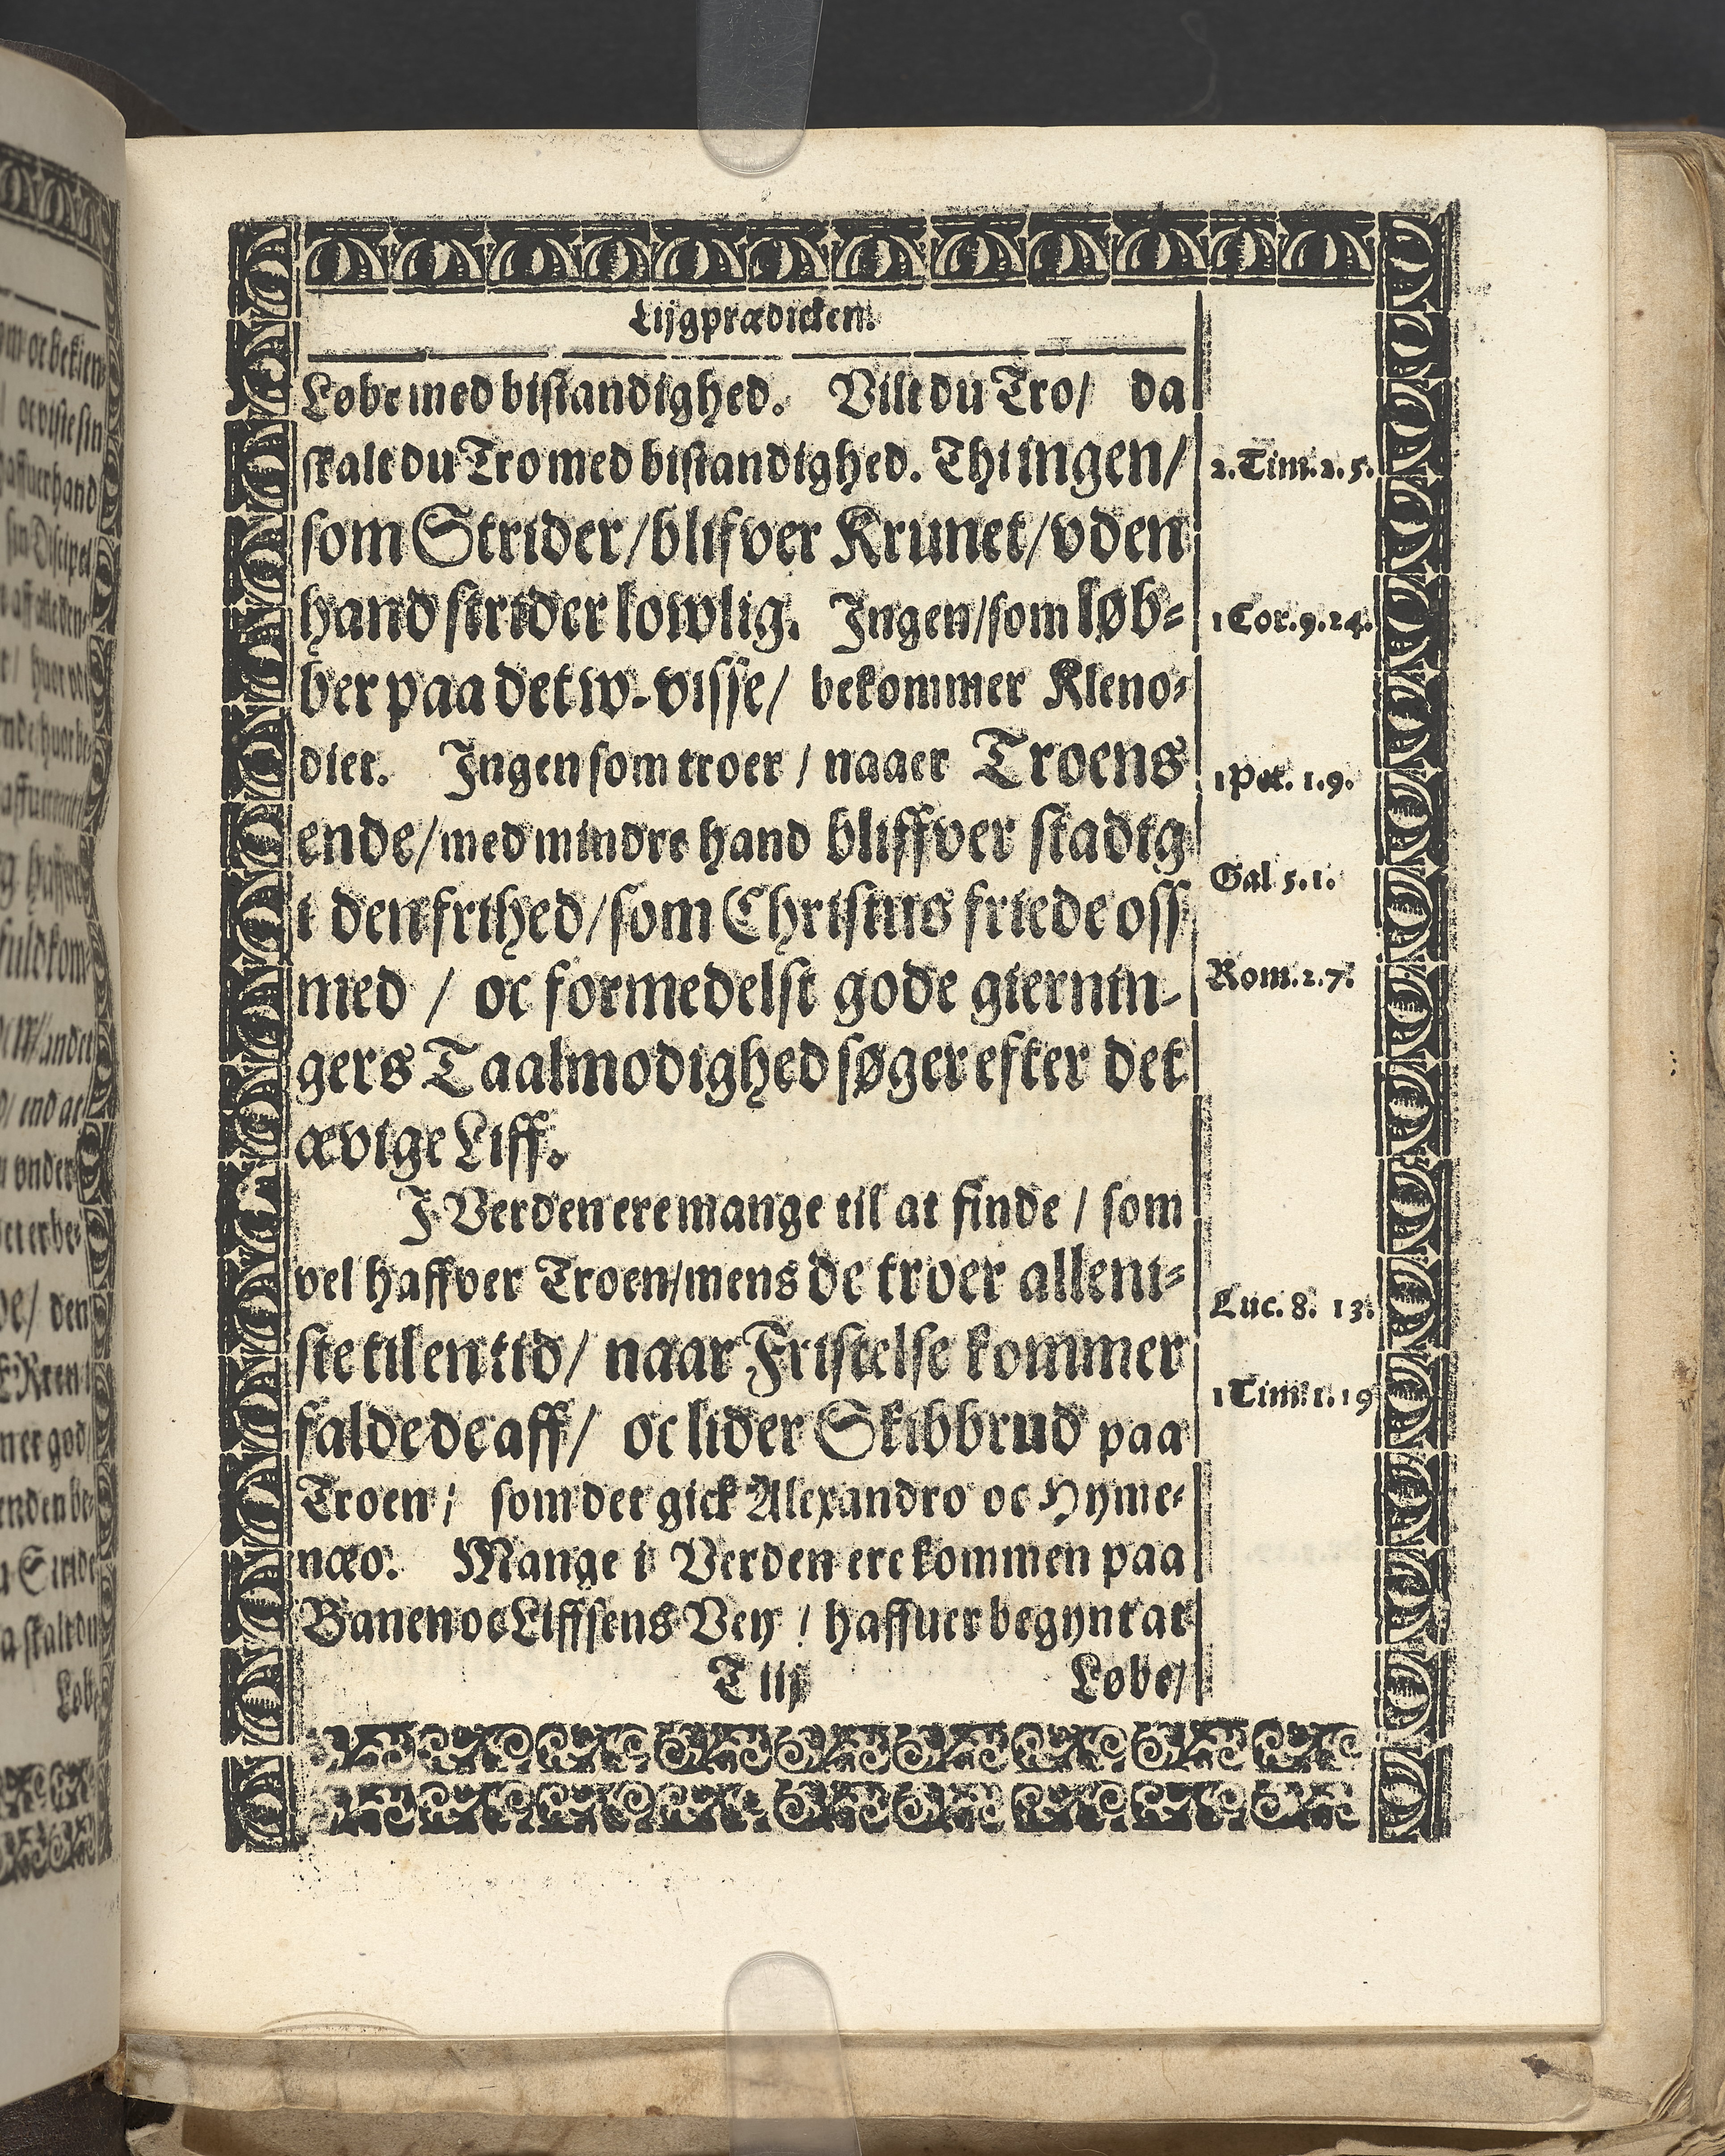 Lijgprædicken.
Løbe med bistandighed. Vilt du Tro/ da
skalt du Tro med bistandighed. Thi ingen/
som Strider/blifver Krunet/vden
hand strider lowlig. Ingen/som løb-
ber paa det w-visse/ bekommer Kleno-
diet. Ingen som troer / naaer Troens
ende/med mindre hand bliffver stadig
i den frihed/som Christus friede oss
med / oc formedelst gode giernin-
gers Taalmodighed søger efter det
ævige Liff.
I Verden ere mange til at finde / som
vel haffver Troen/mens de troer alleni-
ste til en tid/ naar Fristelse kommer
falde de aff/ oc lider Skibbrud paa
Troen/ som det gick Alexandro oc Hyme-
næo. Mange i Verden ere kommen paa
Banen oc Liffsens Vey / haffuer begynt at
T iij Løbe/
2. Tim. 2. 5.
1 Cor. 9. 24.
1 Pet. 1. 9.
Gal 5. 1.
Rom. 2. 7.
Luc. 8. 13.
1 Tim. 1. 19